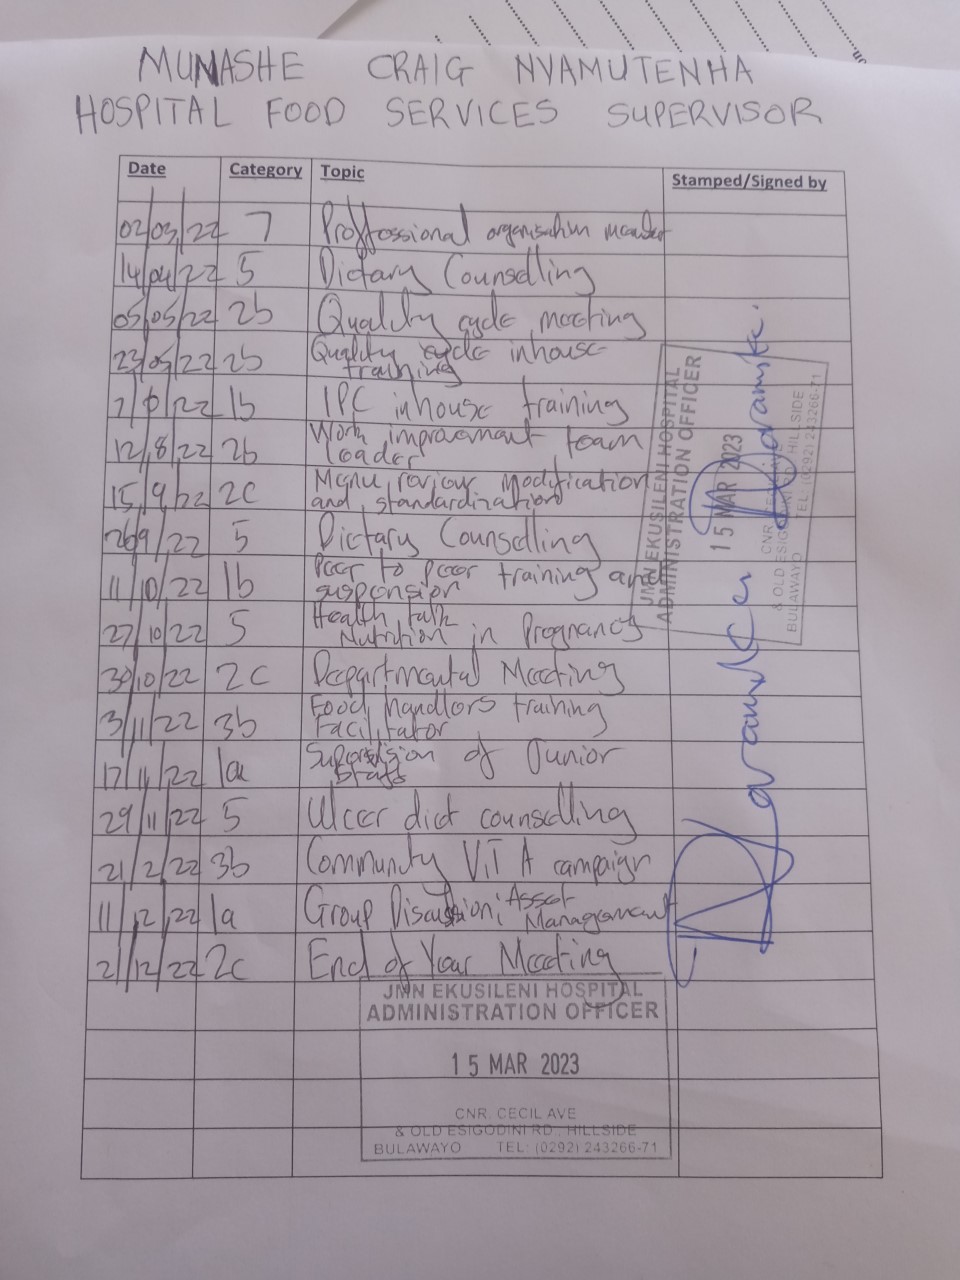 MUNASHE CRAIG NYAMUTENHA
HOSPITAL FOOD SERVICES SUPERVISOR
Date Category Topic Stamped/Signed by
02/03/22 7 Proffessional organisation member
14/04/22 5 Dietary Counselling
05/05/22 2b Quality cycle meeting
23/05/22 2b Quality cycle inhouse
training
22 1b IPC inhouse training
12/8/22 2b Work improvement team
leader
15/9/22 2C Menu review modification
and standardization
26/9/22 5 Dietary Counselling
11/10/22 1b Peer to peer training and
27/10/22 5 Health talk
Nutrition in Pregnancy
30/10/22 2C Departmental Meeting
3/11/22 3b Food handlers training
Facilitator
17/11/22 1a Supervision of Junior
Staff
29/11/22 5 Ulcer diet counselling
21/2/22 3b Community ViT A campaign
11/12/22 1a Group Discussion; Asset
Management
21/12/22 2c End of Year Meeting
JMN EKUSILENI HOSPITAL
ADMINISTRATION OFFICER
15 MAR 2023
CNR. CECIL AVE
& OLD ESIGODINI RD., HILLSIDE
BULAWAYO TEL: (0292) 243266-71
JMN EKUSILENI HOSPITAL
ADMINISTRATION OFFICER
15 MAR 2023
CNR. CECIL AVE
& OLD ESIGODINI RD., HILLSIDE
BULAWAYO TEL: (0292) 243266-71